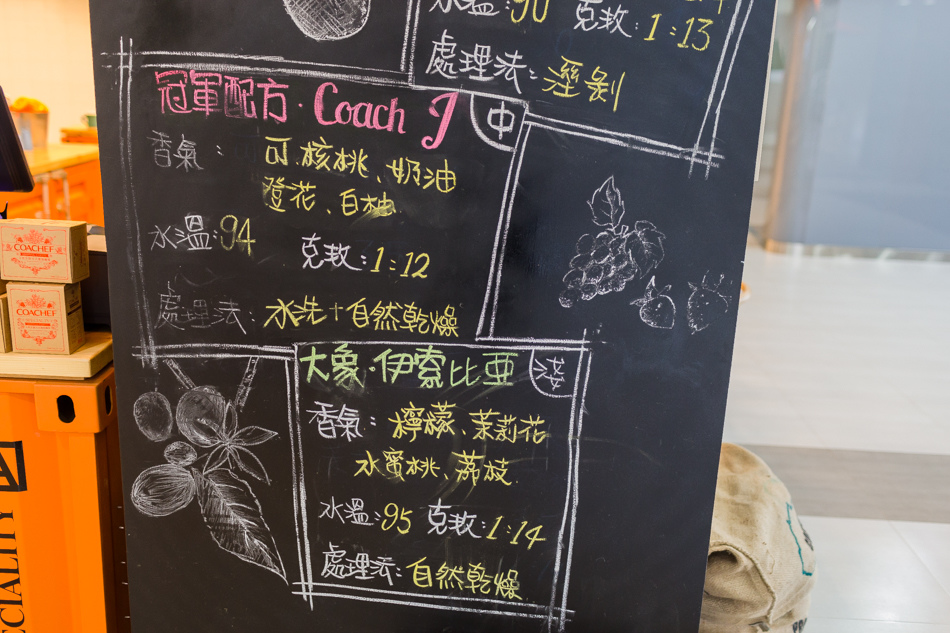 水溫:90 克數:1:13
處理法:溼剝
冠軍配方·Coach J 中
香氣: 可.核桃、奶油
橙花、白柚
水溫:94 克数:1:12
處理法: 水洗+自然乾燥
大象·伊索比亞 淺
香氣: 檸檬、茉莉花
水蜜桃、荔枝
水溫:95 克数:1:14
處理法:自然乾燥
COACHEF
COACHEF